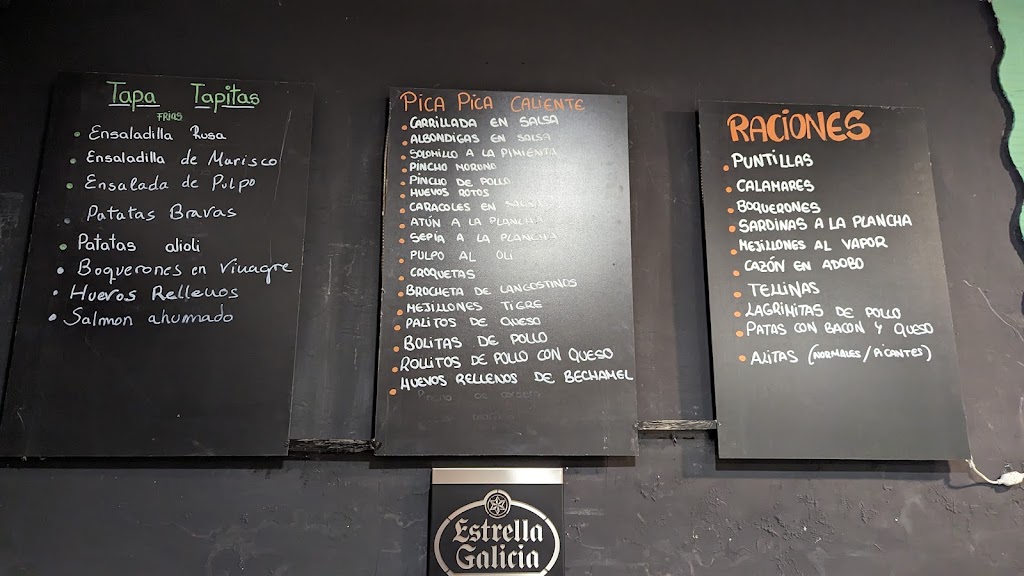 Tapa Tapitas
FRIAS
Ensaladilla Rusa
Ensaladilla de Marisco
Ensalada de Pulpo
Patatas Bravas
Patatas alioli
Boquerones en Vinagre
Huevos Rellenos
Salmon ahumado
PICA PICA CALIENTE
CARRILLADA EN SALSA
ALBONDIGAS EN SALSA
SOLOMILLO A LA PIMIENTA
PINCHO MORUNO
PINCHO DE POLLO
HUEVOS ROTOS
CARACOLES EN SALSA
ATÚN A LA PLANCHA
SEPIA A LA PLANCHA
PULPO AL OLI
CROQUETAS
BROCHETA DE LANGOSTINOS
MEJILLONES TIGRE
PALITOS DE QUESO
BOLITAS DE POLLO
ROLLITOS DE POLLO CON QUESO
HUEVOS RELLENOS DE BECHAMEL
RACIONES
PUNTILLAS
CALAMARES
BOQUERONES
SARDINAS A LA PLANCHA
MEJILLONES AL VAPOR
CAZÓN EN ADOBO
TELLINAS
LAGRIMITAS DE POLLO
PATAS CON BACON Y QUESO
ALITAS (NORMALES/PICANTES)
Estrella
Galicia